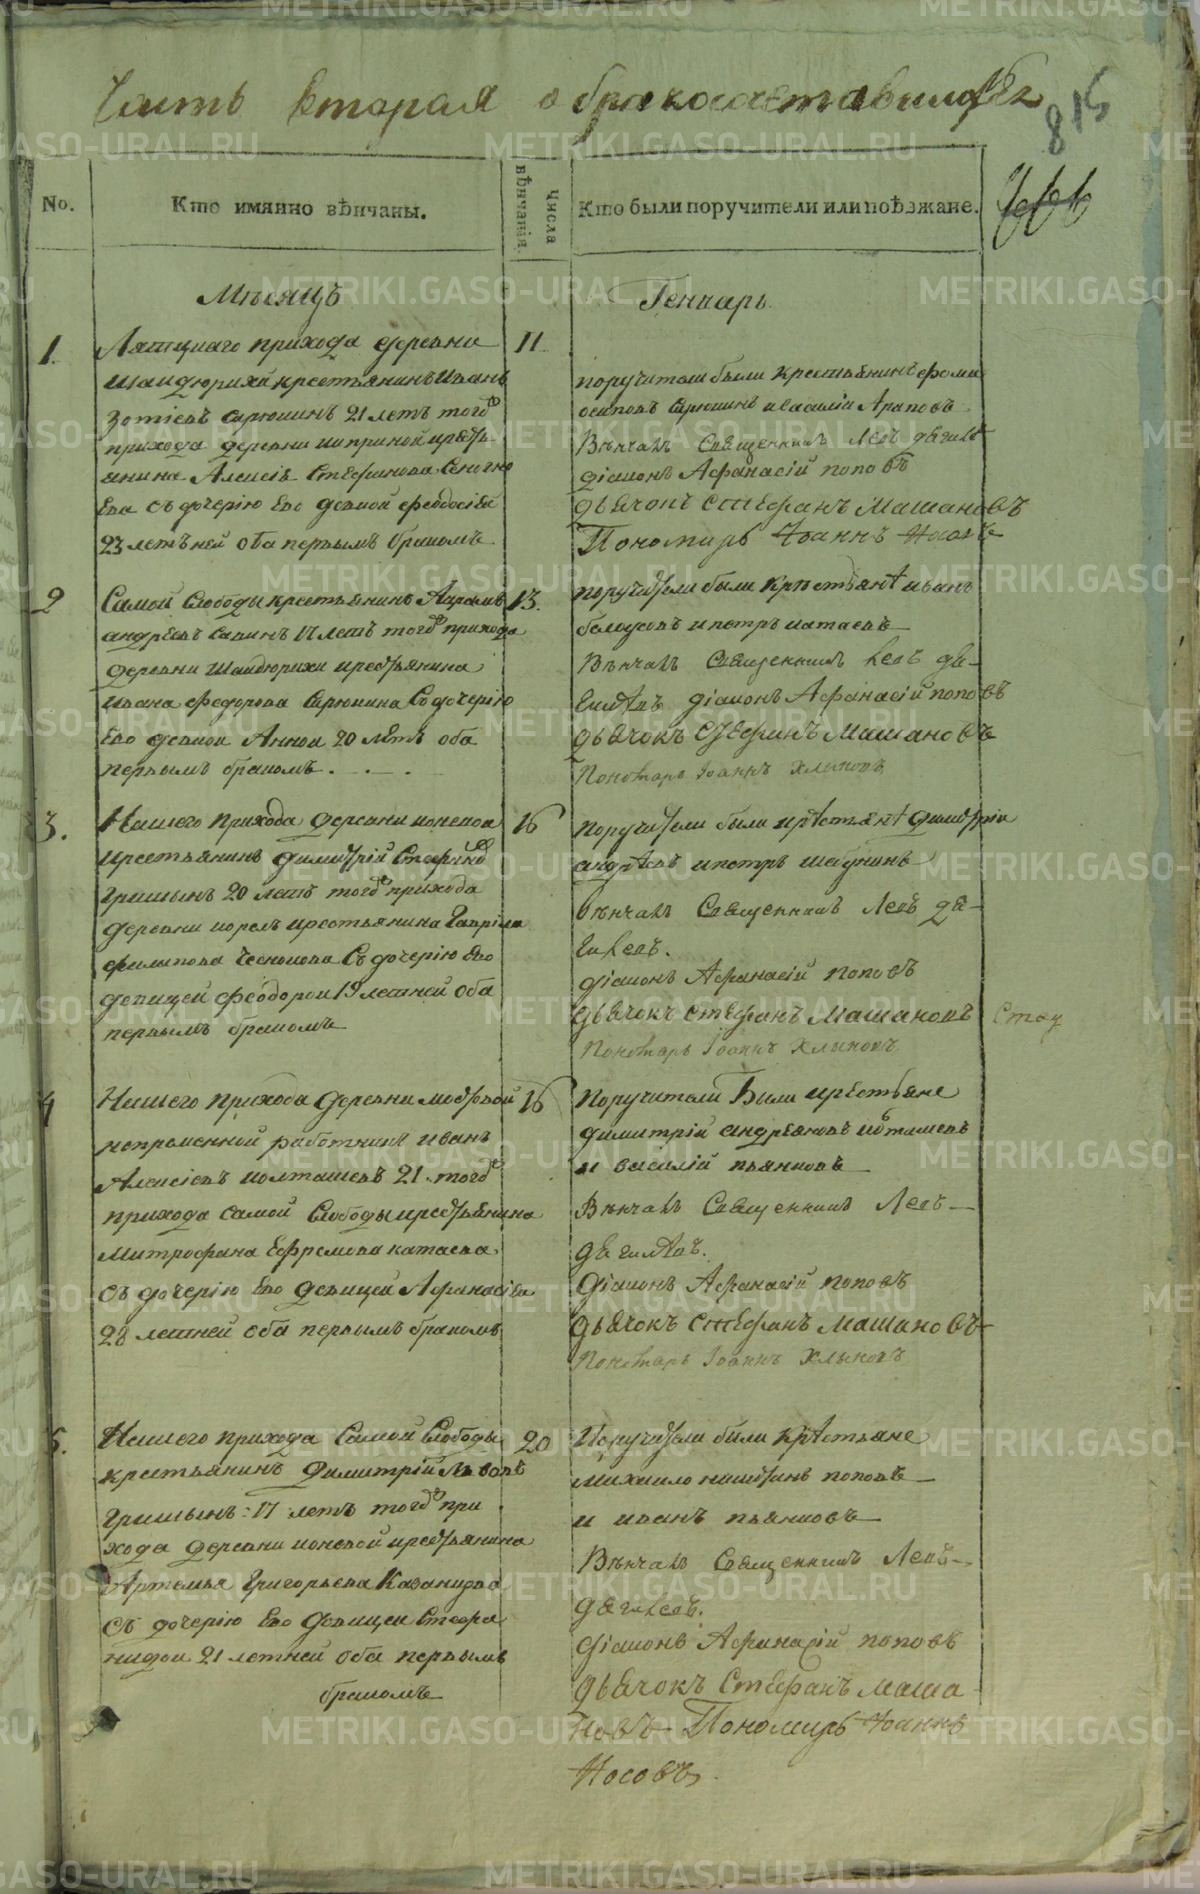 Часть вторая о бракосочетавшихся
815
No.
Кто имянно вѣнчаны.
Числа вѣнчанія.
Кто были поручители или поѣзжане.
Мѣсяцъ
Генварь
1.
прихода деревни
11
Шайдюрихи крестьянинъ Иванъ
Зотіевъ Сырюшинъ 21 летъ тогожъ
прихода деревни кресть
янина Алексіѣ Стефанова
ева съ дочерію Ево девкой Феодосіей
23 летъней оба первымъ бракомъ
поручители были крестьянинъ Фома
осиповъ Сырюшинъ и василій Араповъ
Вѣнчалъ Священникъ Левъ
діаконъ Афанасій поповъ
дьячокъ Стефанъ Машановъ
Пономарь Іоаннъ Носовъ
2
Самой Слободы крестьянинъ Авраамъ
13.
андрѣевъ Савинъ 17 летъ тогожъ прихода
деревни Шайдюрихи крестьянина
ивана федорова Сырюшина Съ дочерію
Ево девкой Анной 20 лѣтъ оба
первымъ бракомъ.
поручители были крѣстьянѣ иванъ
белоусовъ и петръ катаевъ
Вѣнчалъ Священникъ Левъ
діаконъ Афанасій поповъ
дьячокъ Стефанъ Машановъ
Пономарь Іоаннъ Хлыновъ
3.
Нашего прихода деревни коневой
16
крестьянинъ Димитрій Стефановъ
Гришинъ 20 летъ тогожъ прихода
деревни корелъ крестьянина Гавріила
филипова Чеснокова Съ дочерію Ево
девицей Феодорой 19 летней оба
первымъ бракомъ
поручители были крѣстьянѣ Димитрій
андрѣевъ и петръ шавунинъ
вѣнчалъ Священникъ Левъ
діаконъ Афанасій поповъ
дьячокъ Стефанъ Машановъ
Пономарь Іоаннъ Хлыновъ
4
Нашего прихода деревни мостовой
16
непременной работникъ иванъ
Алексіевъ колташевъ 21 тогожъ
прихода самой Слободы крестьянина
Митрофана Ефремова катаева
съ дочерію Ево девицей Афанасіей
28 летней оба первымъ бракомъ
Поручители Были крѣстьяне
димитрій андрѣяновъ колташевъ
и василій пьянковъ
Вѣнчалъ Священникъ Левъ
Діаконъ Афанасій поповъ
дьячокъ Стефанъ Машановъ
Пономарь Іоаннъ Хлыновъ
5.
Нашего прихода Самой Слободы
20
крестьянинъ Димитрій Львовъ
Гришинъ 17 летъ тогожъ при
хода деревни коневой крестьянина
Артемья Григорьева Казанцова
съ дочерію Ево девицей Стефа
нидой 21 летней оба первымъ
бракомъ
Поручители были крѣстьяне
Михайло никитинъ поповъ
и иванъ пьянковъ
Вѣнчалъ Священникъ Левъ
діаконъ Афанасій поповъ
дьячокъ Стефанъ маша
новъ Пономарь Іоаннъ
Носовъ
METRIKI.GASO-URAL.RU